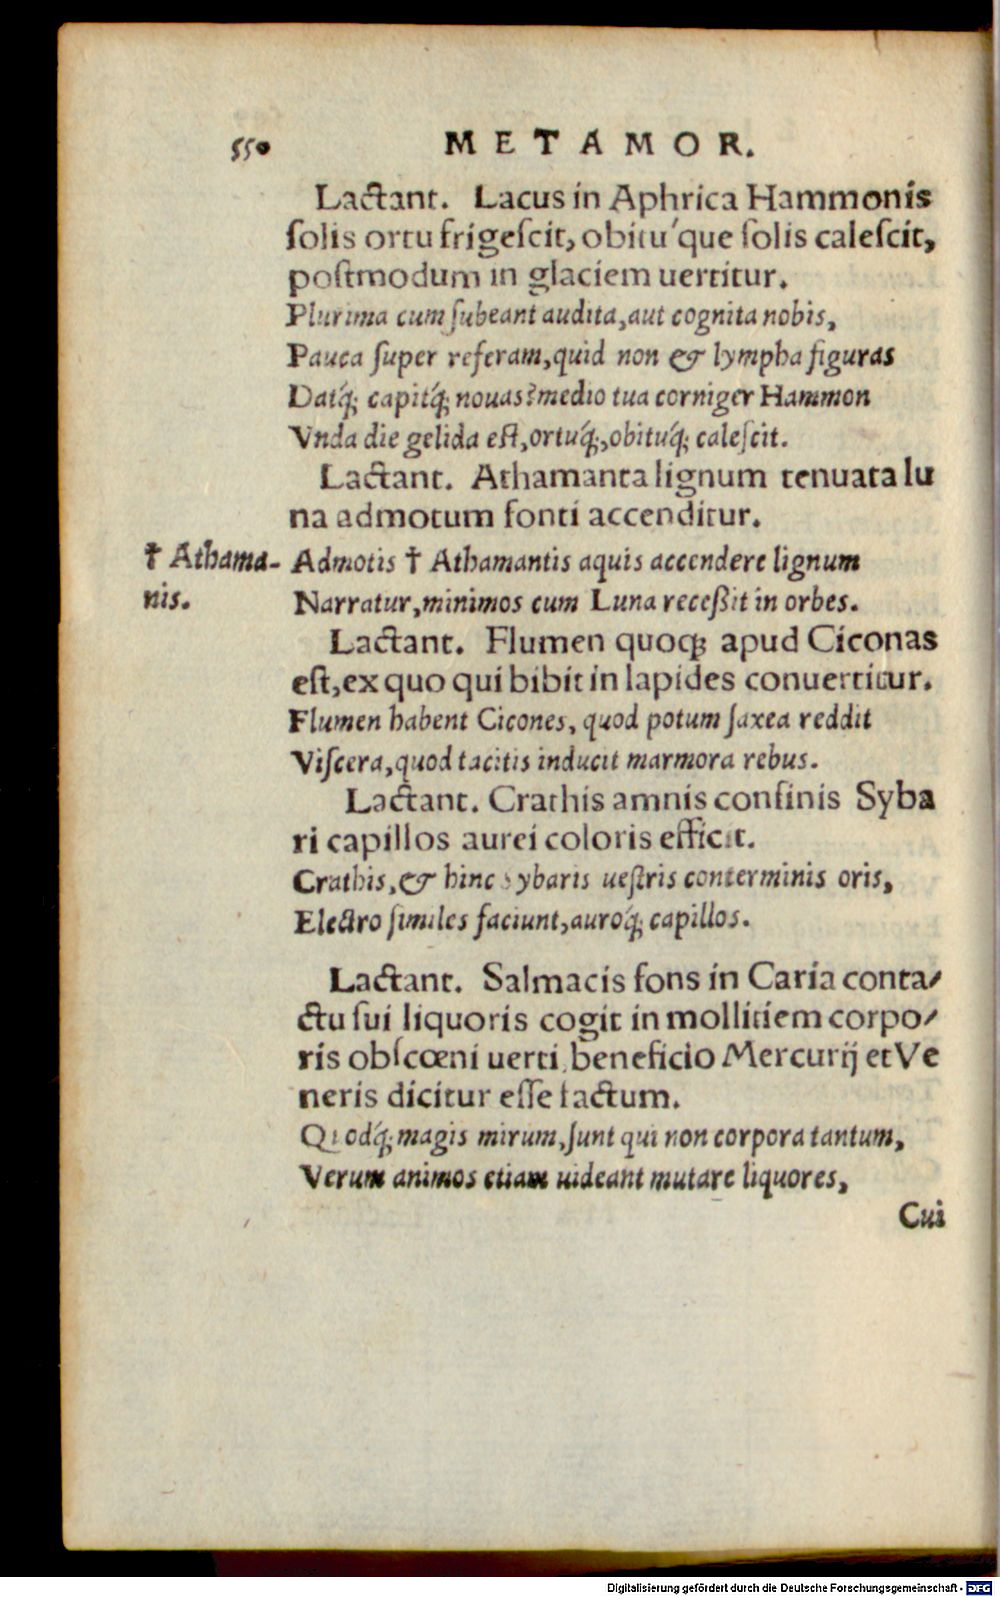 550 METAMOR.
Lactant. Lacus in Aphrica Hammonis
ſolis ortu frigeſcit, obitu'que ſolis caleſcit,
poſtmodum in glaciem uertitur.
Plurima cum ſubeant audita, aut cognita nobis,
Pauca ſuper referam, quid non & lympha figuras
Datq́; capitq́; nouas? medio tua corniger Hammon
Vnda die gelida eſt, ortuq́;, obituq́; caleſcit.
Lactant. Athamanta lignum tenuata lu
na admotum fonti accenditur.
Admotis † Athamantis aquis accendere lignum
† Athama-
nis.
Narratur, minimos cum Luna receßit in orbes.
Lactant. Flumen quoq; apud Ciconas
eſt, ex quo qui bibit in lapides conuertitur.
Flumen habent Cicones, quod potum ſaxea reddit
Viſcera, quod tacitis inducit marmora rebus.
Lactant. Crathis amnis confinis Syba
ri capillos aurei coloris efficit.
Crathis, & hinc Sybaris ueſtris conterminis oris,
Electro ſimiles faciunt, auroq́; capillos.
Lactant. Salmacis fons in Caria conta/
ctu ſui liquoris cogit in mollitiem corpo/
ris obſcœni uerti, beneficio Mercurij et Ve
neris dicitur eſſe factum.
Quodq́; magis mirum, ſunt qui non corpora tantum,
Verum animos etiam uideant mutare liquores,
Cui
Digitalisierung gefördert durch die Deutsche Forschungsgemeinschaft - DFG